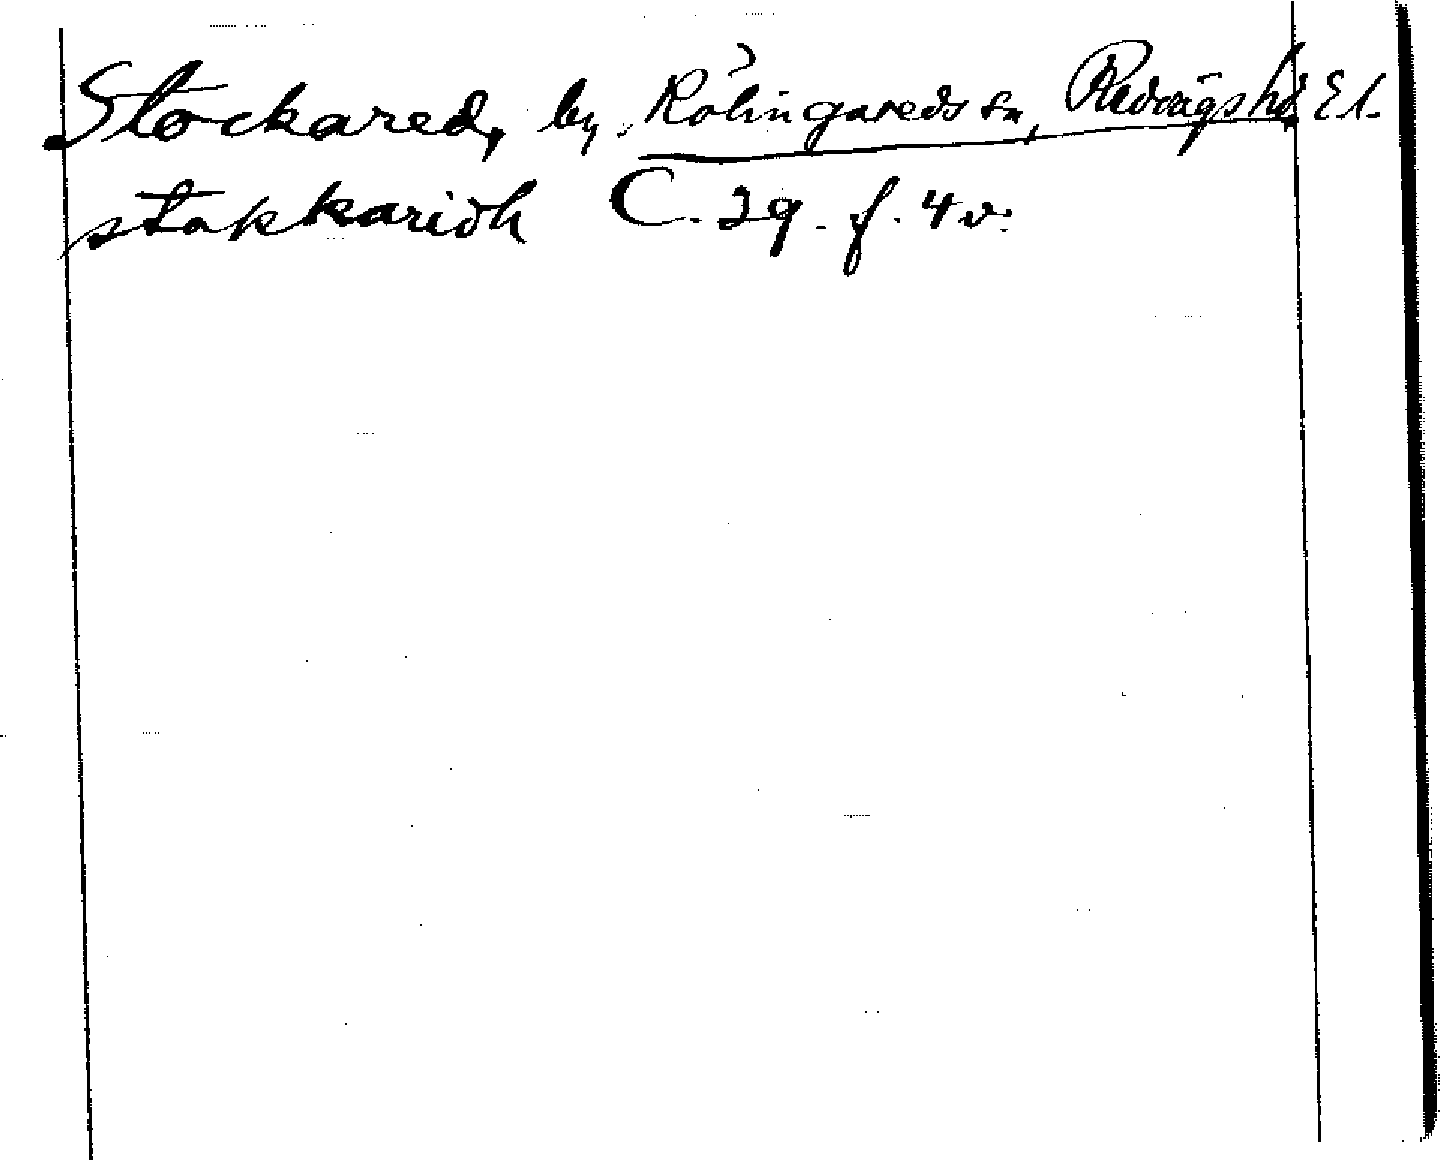 Stockared, by, Rölingareds sn, Redvägs hd El.
stakkaridh C. 29. f. 4 v.